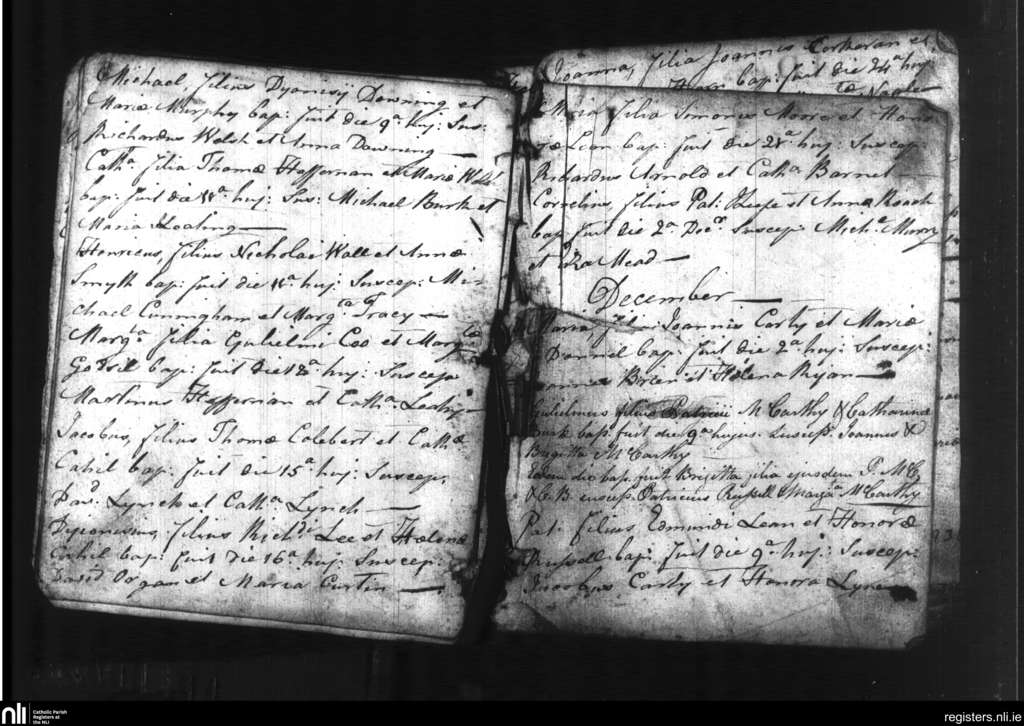 Michael, filius Dyonisij Downing et
Mariæ Murphy bap: fuit die 9a huj: Sus:
Richardus Welsh et Anna Downing
Catha filia Thomæ Heffernan et Mariæ Walsh
bap: fuit die huj: Sus: Michael Burk et
Maria
Henricus, filius Nicholai Wall et Annæ
Smyth bap: fuit die huj: Suscep: Mi-
chael Cuningham et Margta Tracy
Margta filia Gulielmi Coo et
bap: fuit die 12a huj: Suscep
Martinus Heffernan et Catha Leahy
Jacobus, filius Thomæ Colebert et Cathæ
Cahil bap: fuit die 15a huj: Suscep.
Davd Lynch et Catha Lynch
Dyonisius, filius Richdi Lee et Helenæ
Cahil bap: fuit die 16a huj: Suscep:
David et Maria Curtin
Joanna, filia Joannis Corkeran et
bap: fuit die 24a huj
Maria filia Simonis Moore et Hono
ræ Lean bap: fuit die 28a huj: Suscep:
Richardus Arnold et Catha Barnet
Cornelius, filius Pat: Keefe et Annæ Roach
bap fuit die 2a Decr Suscep: Micha
et Mead
December
Maria, filia Joannis Carty et Mariæ
Daniel bap: fuit die 2a huj: Suscep:
Brien et Helena Ryan
Gulielmus filius Patricii McCarthy & Catharinæ
Burk bap: fuit die 9a hujus. Suscep: Joannes &
Brigitta McCarthy
Eodem die bap. fuit Brigitta filia ejusdem P. McC
& C B suscep: Patricius Russell & Margta McCarthy
Pat: filius Edmundi Lean et Honoræ
Russell bap: fuit die 9a huj: Suscep:
Jacobus Carty et Honora
nli
Catholic Parish
Registers at
the NLI
registers.nli.ie